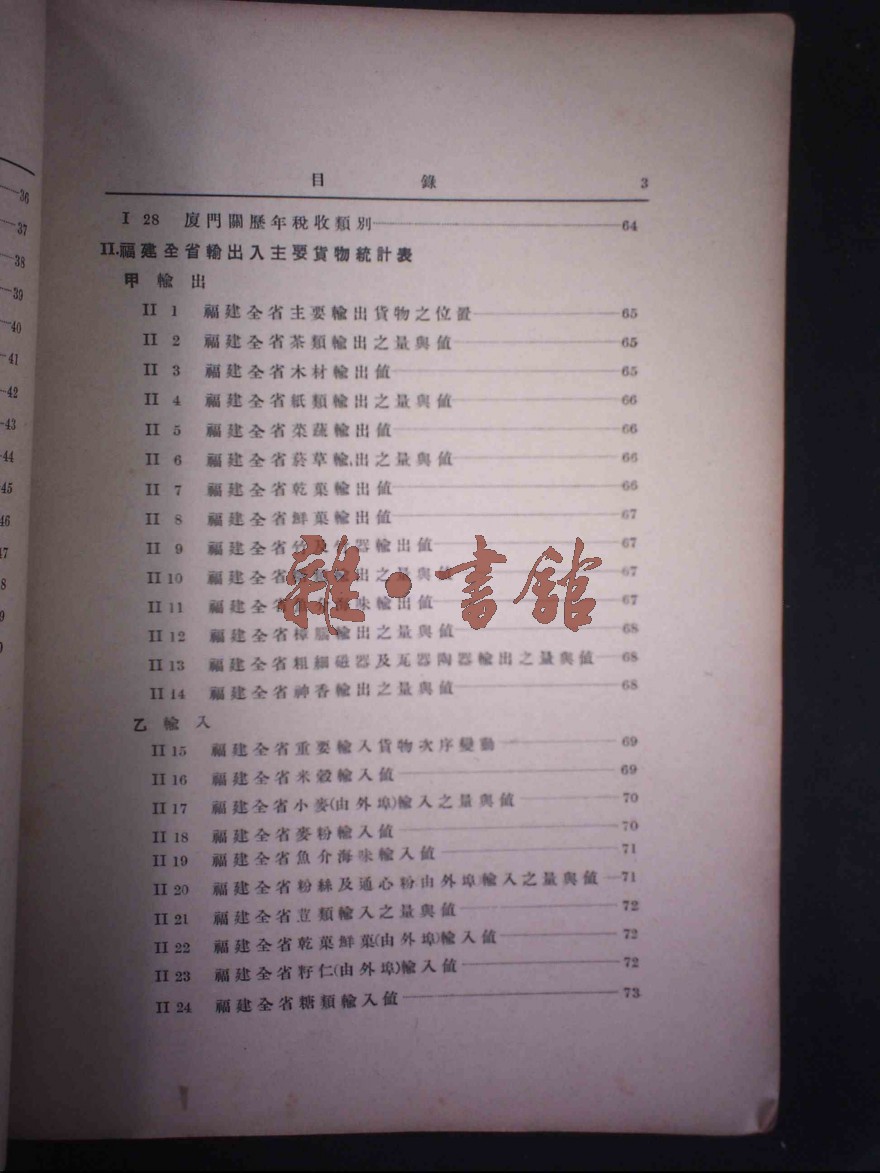 36
37
38
39
40
41
42
43
44
45
46
47
8
9
目錄 3
I 28 廈門關歷年稅收類別 64
II.福建全省輸出入主要貨物統計表
甲 輸出
II 1 福建全省主要輸出貨物之位置 65
II 2 福建全省茶類輸出之量與值 65
II 3 福建全省木材輸出值 65
II 4 福建全省紙類輸出之量與值 66
II 5 福建全省菜蔬輸出值 66
II 6 福建全省菸草輸出之量與值 66
II 7 福建全省乾菓輸出值 66
II 8 福建全省鮮菓輸出值 67
II 9 福建全省竹及竹器輸出值 67
II 10 福建全省輸出之量與值 67
II 11 福建全省魚介海味輸出值 67
II 12 福建全省樟腦輸出之量與值 68
II 13 福建全省粗細磁器及瓦器陶器輸出之量與值 68
II 14 福建全省神香輸出之量與值 68
乙 輸入
II 15 福建全省重要輸入貨物次序變動 69
II 16 福建全省米穀輸入值 69
II 17 福建全省小麥(由外埠)輸入之量與值 70
II 18 福建全省麥粉輸入值 70
II 19 福建全省魚介海味輸入值 71
II 20 福建全省粉絲及通心粉由外埠輸入之量與值 71
II 21 福建全省荳類輸入之量與值 72
II 22 福建全省乾菓鮮菓(由外埠)輸入值 72
II 23 福建全省籽仁(由外埠)輸入值 72
II 24 福建全省糖類輸入值 73
雜·書館